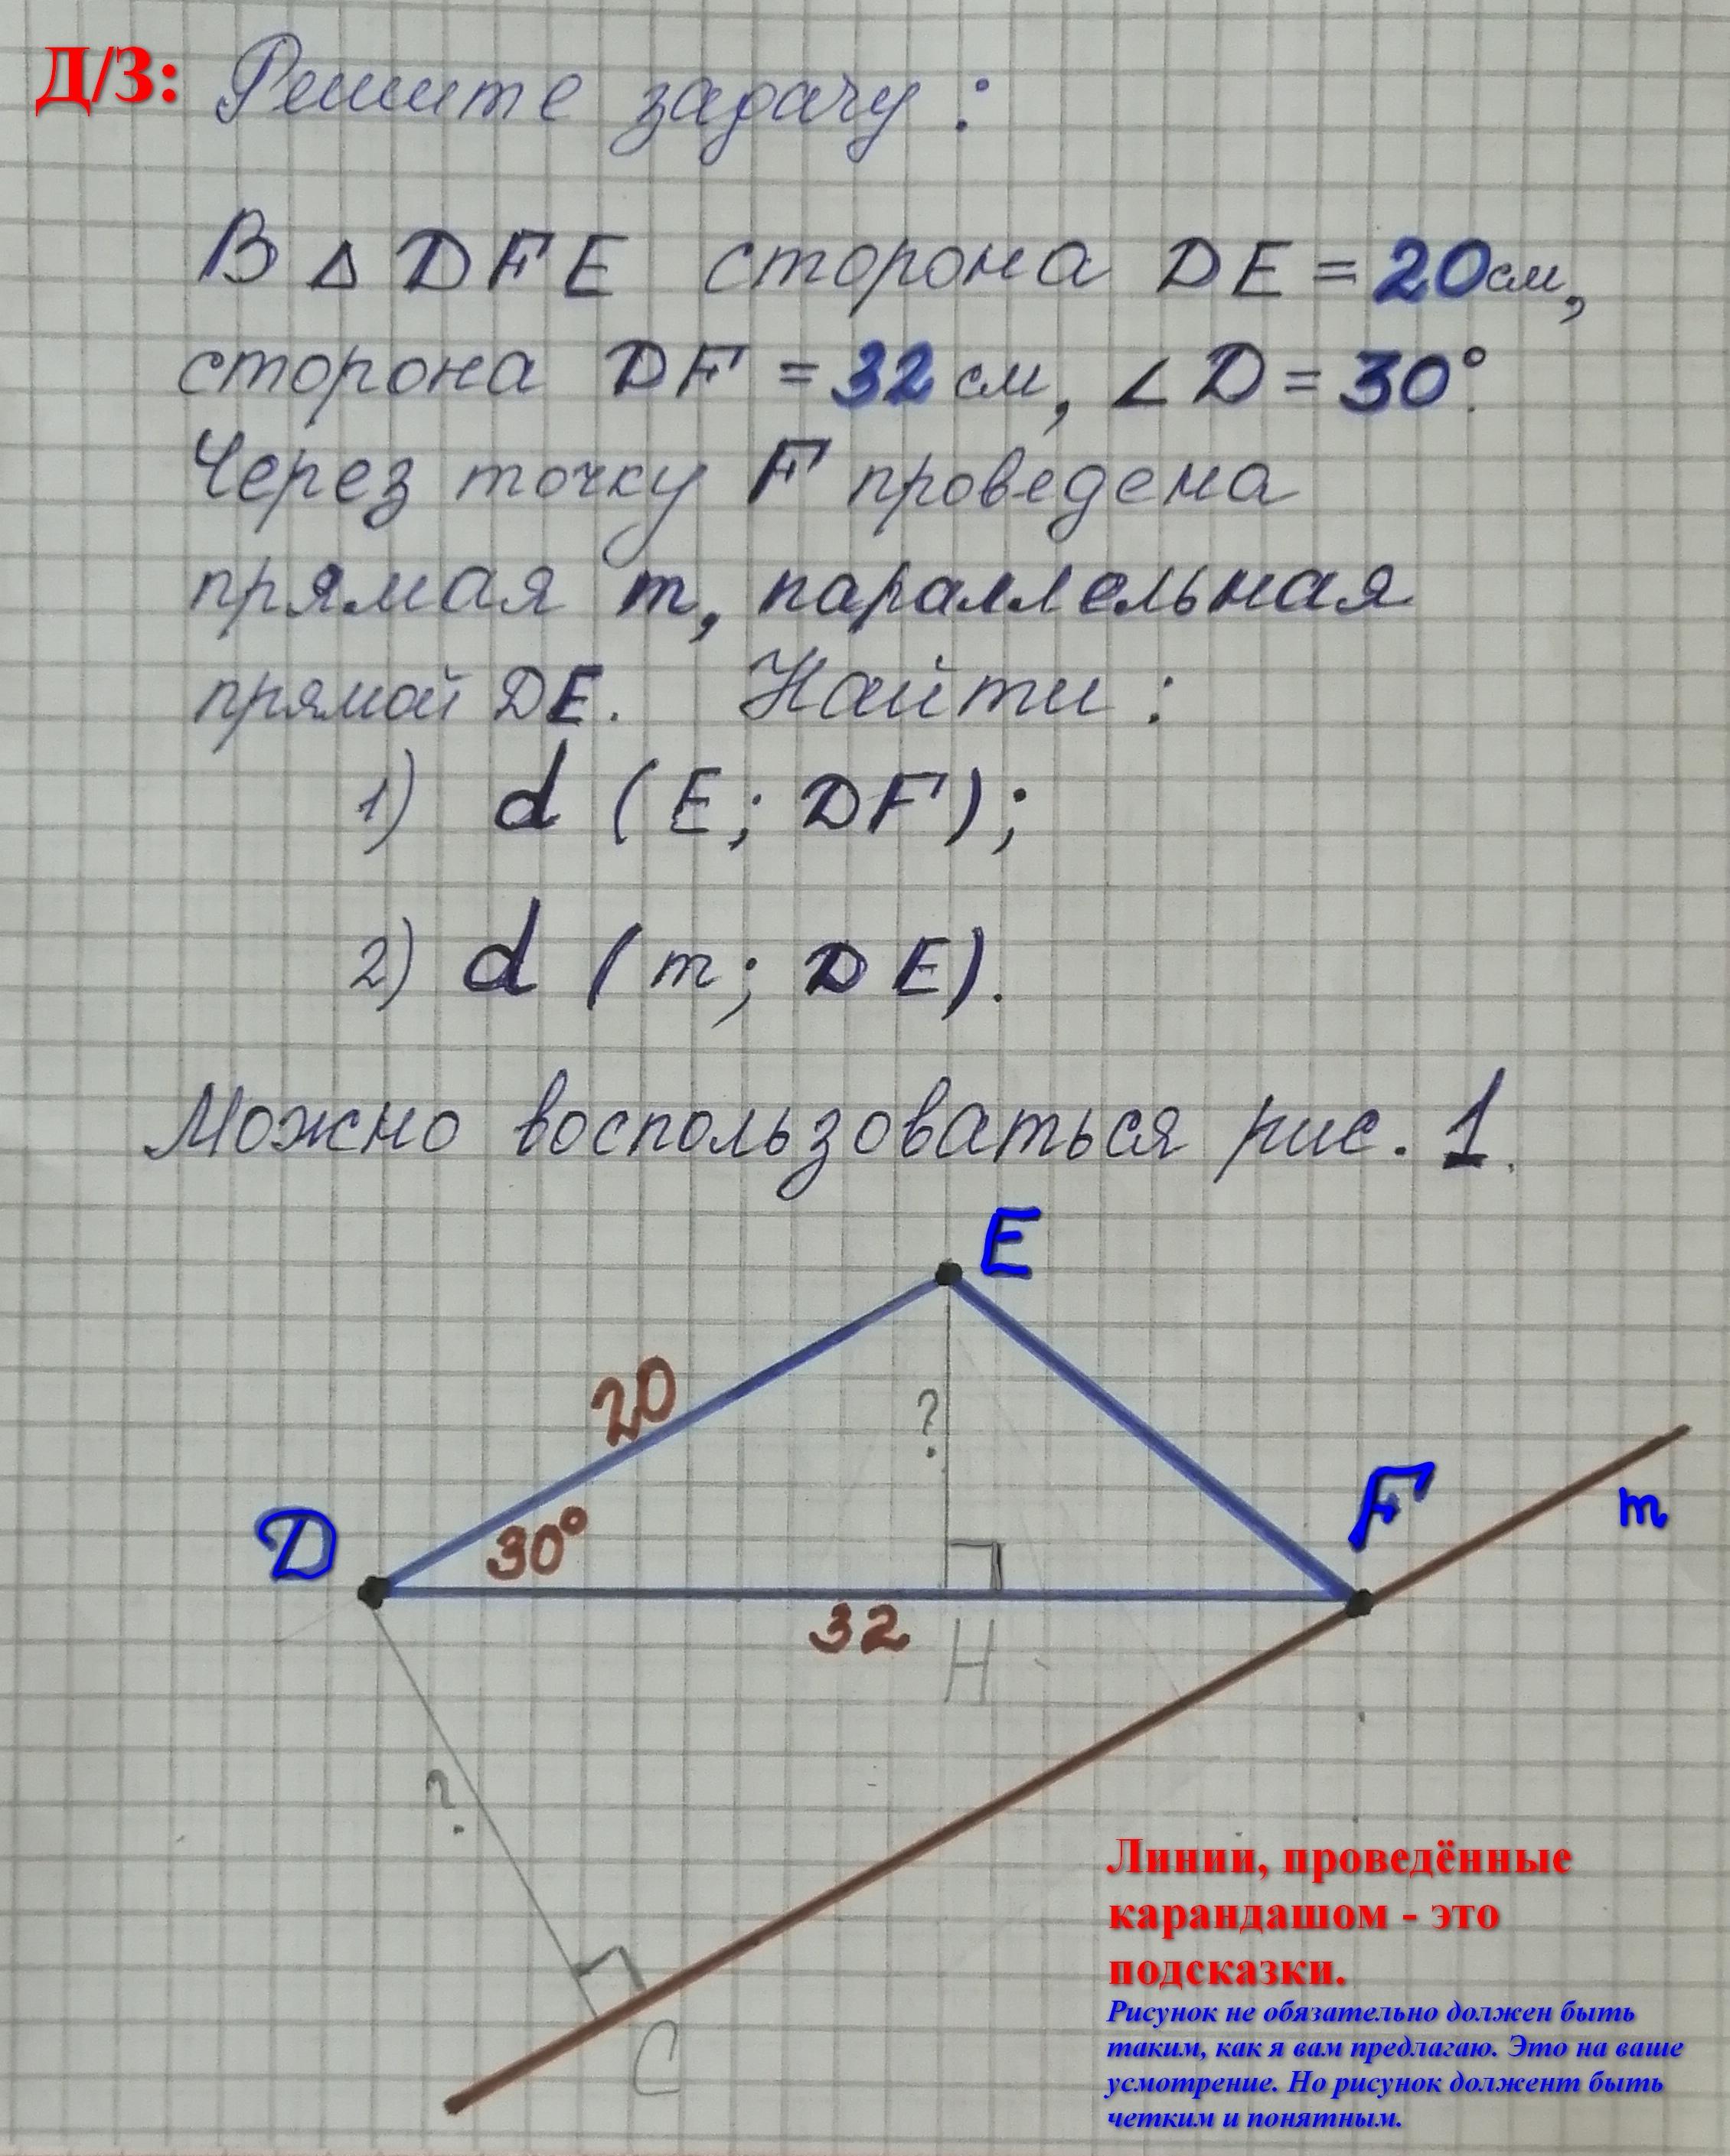 Д/З: Решите задачу:
В △ DFE сторона DE = 20 см,
сторона DF = 32 см, ∠D = 30°.
Через точку F проведена
прямая m, параллельная
прямой DE. Найти:
1) d (E; DF);
2) d (m; DE).
Можно воспользоваться рис. 1.
E
20
?
F
m
D
30°
32
H
?
C
Линии, проведённые
карандашом - это
подсказки.
Рисунок не обязательно должен быть
таким, как я вам предлагаю. Это на ваше
усмотрение. Но рисунок должент быть
четким и понятным.